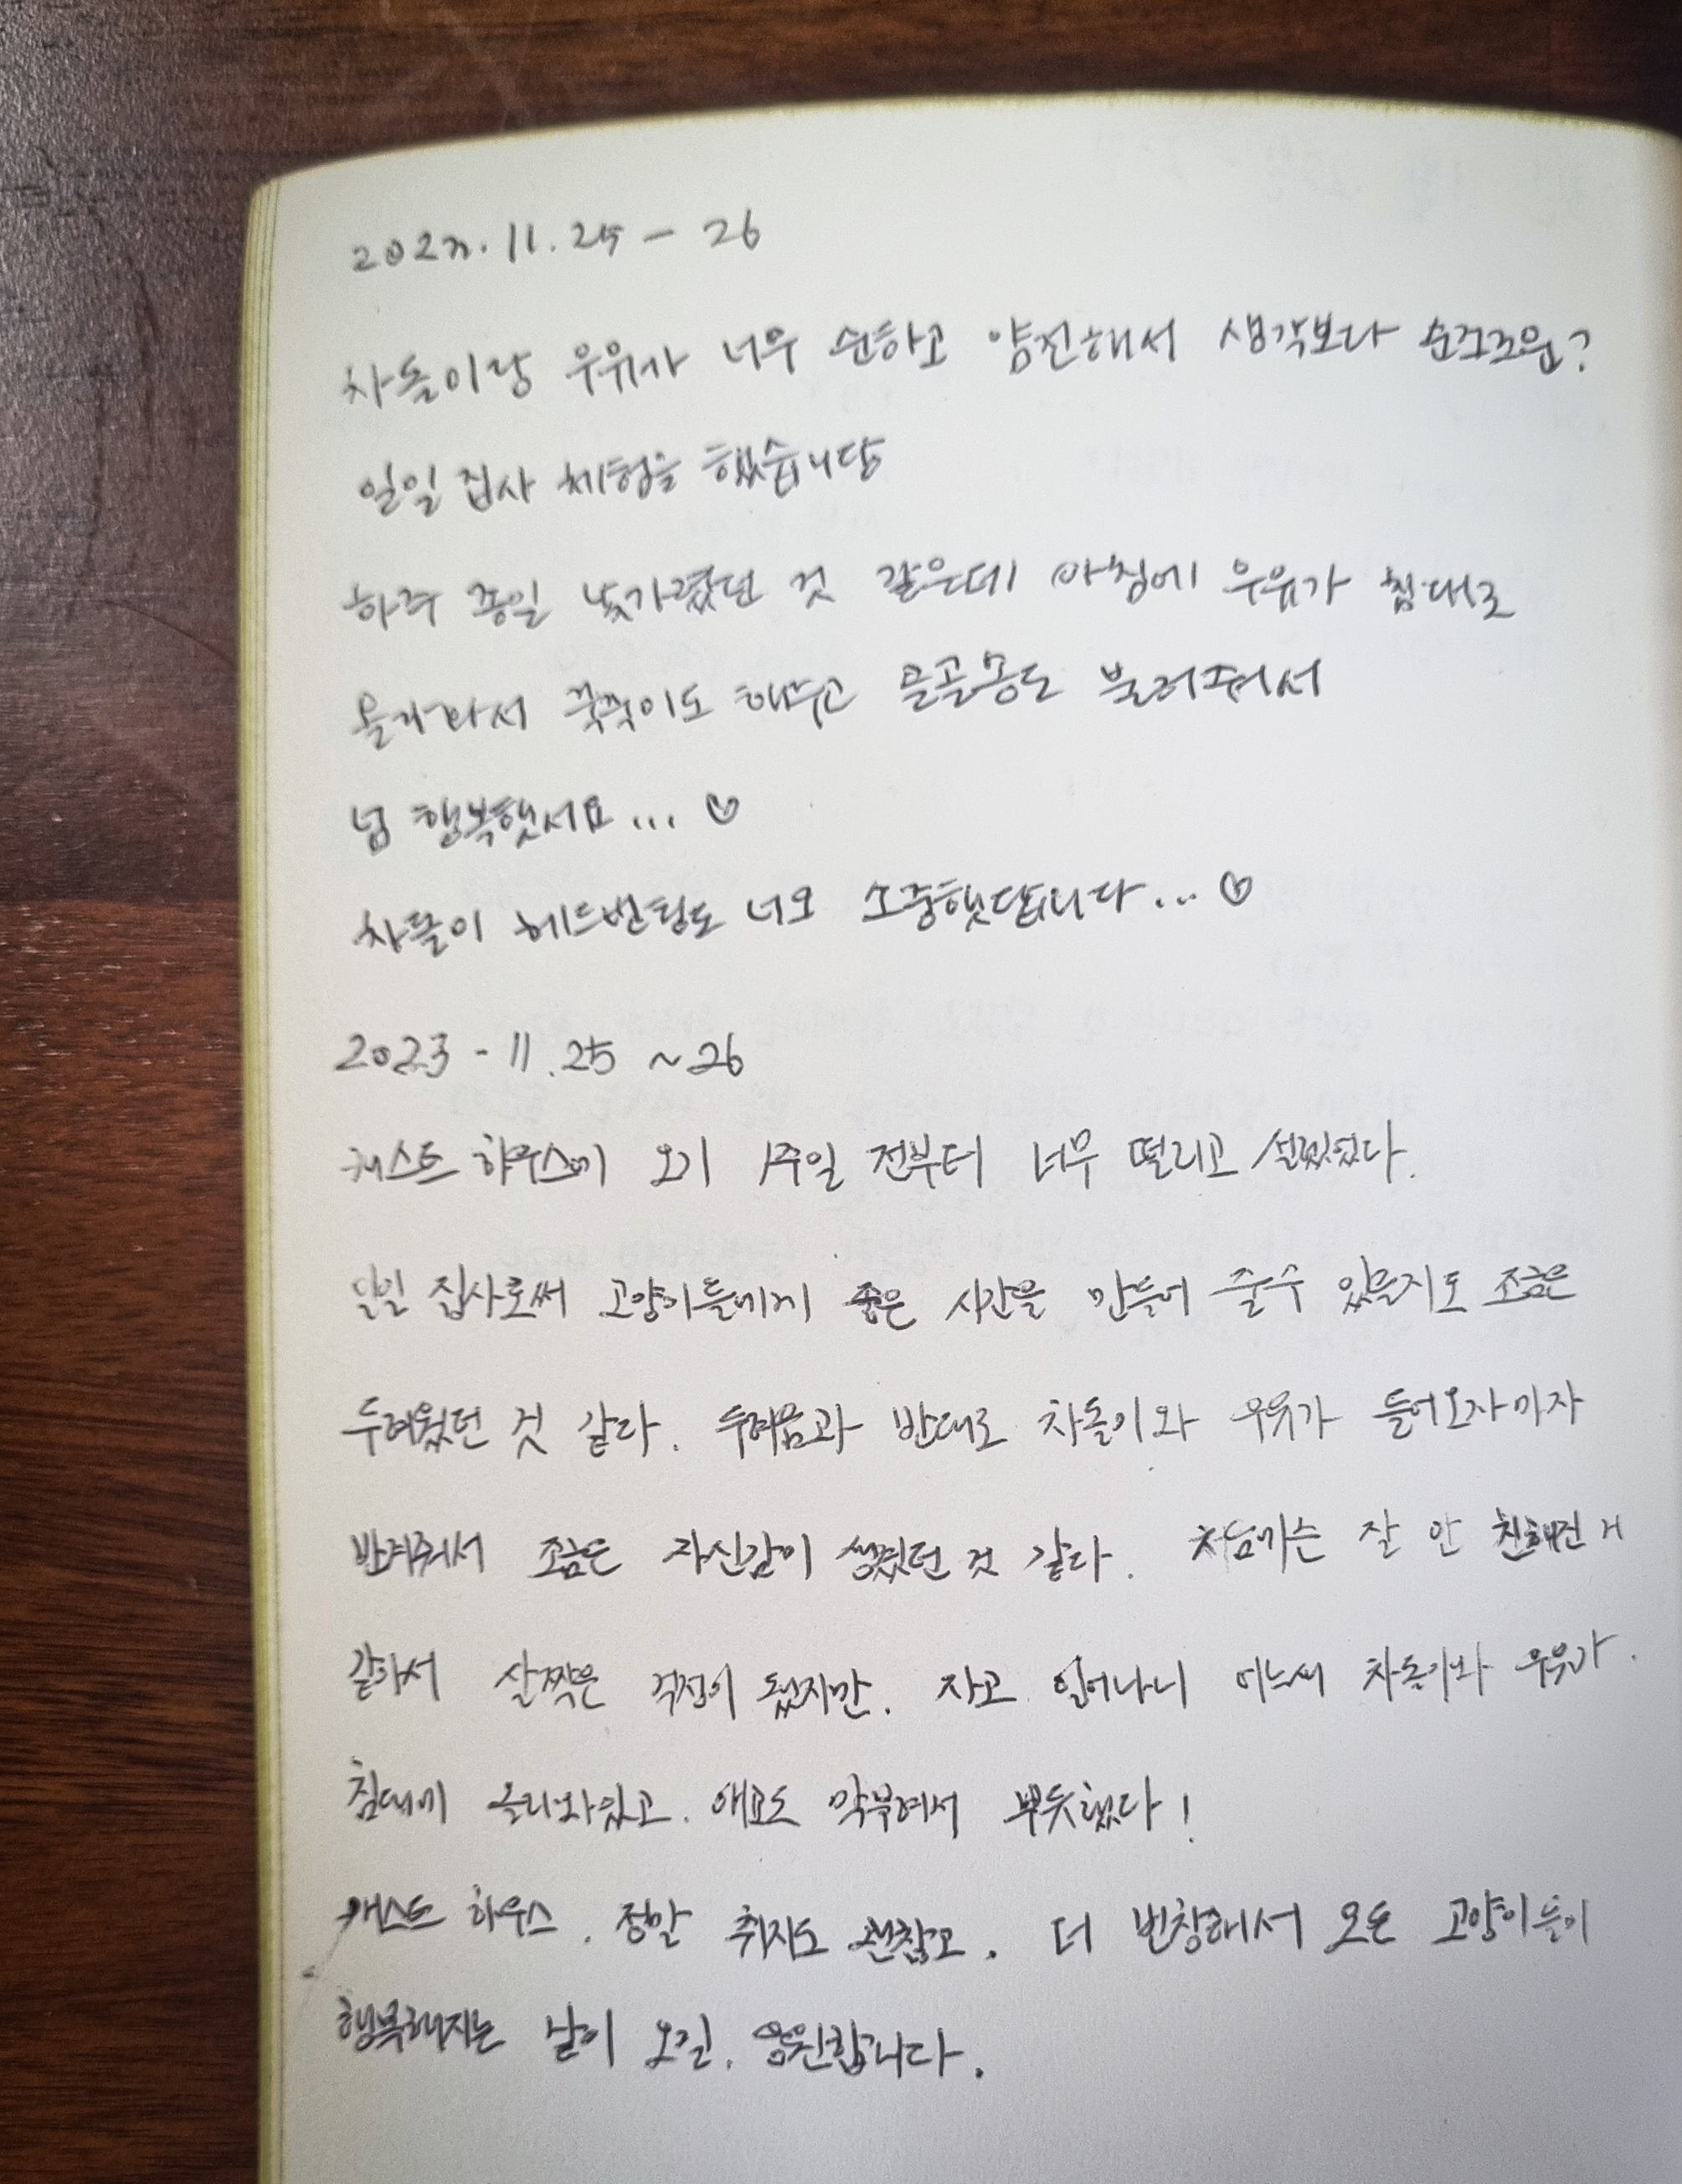 2023. 11. 25 - 26
차돌이랑 우유가 너무 순하고 얌전해서 생각보다 순조로운?
일일 집사 체험을 했습니닷
하루 종일 낯가렸던 것 같은데 아침에 우유가 침대로
올라와서 꾹꾹이도 해주고 골골송도 불러줘서
넘 행복햇서요... ♡
차돌이 헤드번팅도 너모 소중햇답니다... ♡
2023 - 11. 25 ~ 26
캐스트 하우스에 오기 1주일 전부터 너무 떨리고 설렜었다.
일일 집사로써 고양이들에게 좋은 시간을 만들어 줄수 있을지도 조금은
두려웠던 것 같다. 두려움과 반대로 차돌이와 우유가 들어오자마자
반겨줘서 조금은 자신감이 생겼던 것 같다. 처음에는 잘 안 친해진 거
같아서 살짝은 걱정이 됐지만, 자고 일어나니 어느새 차돌이와 우유가.
침대에 올라와있고, 애교도 막부려서 뿌듯했다!
캐스트 하우스, 정말 취지도 괜찮고, 더 번창해서 모든 고양이들이
행복해지는 날이 오길, 응원합니다.